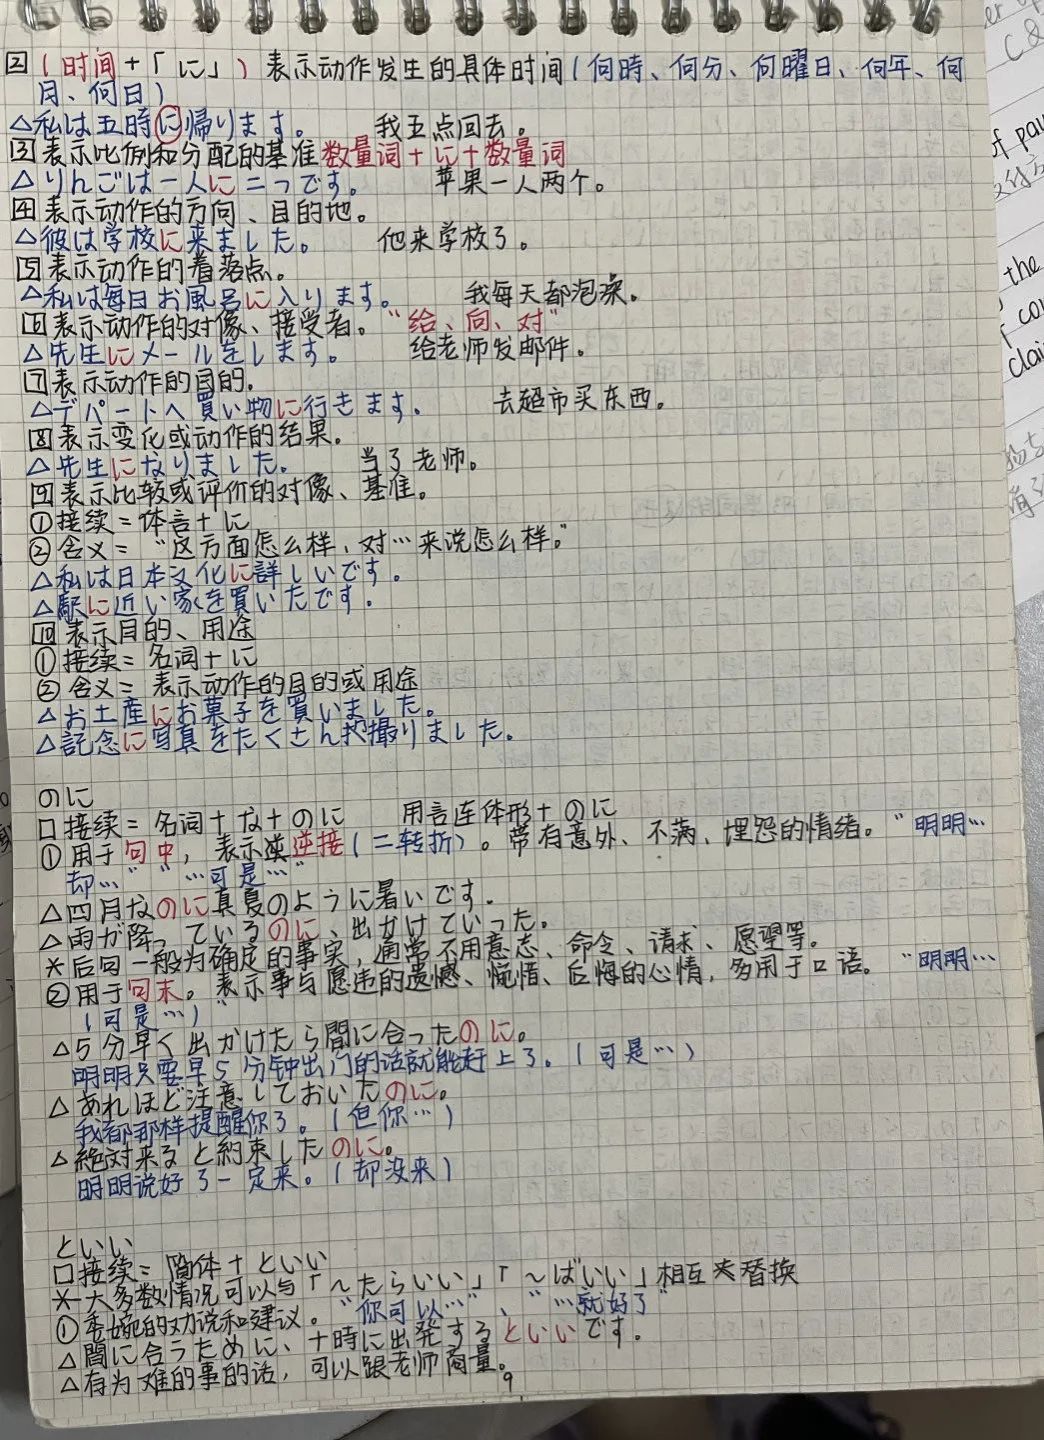 ② (时间+「に」) 表示动作发生的具体时间(何時、何分、何曜日、何年、何
月、何日)
△私は五時に帰ります。 我五点回去。
③表示比例和分配的基准数量词+に+数量词
△りんごは一人に二つです。 苹果一人两个。
④表示动作的方向、目的地。
△彼は学校に来ました。 他来学校了。
⑤表示动作的着落点。
△私は毎日お風呂に入ります。 我每天都泡澡。
⑥表示动作的对像、接受者。“给、向、对”
△先生にメールをします。 给老师发邮件。
⑦表示动作的目的.
△デパートへ買い物に行きます. 去超市买东西。
⑧表示变化或动作的结果.
△先生になりました。 当了老师。
⑨表示比较或评价的对像、基准。
①接续=体言+に
②含义=“这方面怎么样,对…来说怎么样。”
△私は日本文化に詳しいです。
△駅に近い家を買いたです.
⑩表示目的、用途
①接续=名词+に
②含义=表示动作的目的或用途
△お土産にお菓子を買いました。
△記念に写真をたくさん撮りました。
のに
□接续=名词+な+のに 用言连体形+のに
①用于句中,表示逆接(=转折)。带有意外、不满、埋怨的情绪。“明明…
却…”“…可是…”
△四月なのに真夏のように暑いです.
△雨が降っているのに、出かけていった。
*后句一般为确定的事实,通常不用意志、命令、请求、愿望等。
②用于句末。表示事与愿违的遗憾、惋惜、后悔的心情,多用于口语。“明明…
(可是…)”
△5分早く出かけたら間に合ったのに。
明明只要早5分钟出门的话就能赶上了。(可是…)
△あれほど注意しておいたのに。
我都那样提醒你了。(但你…)
△絶対来ると約束したのに。
明明说好了一定来。(却没来)
といい
□接续=简体+といい
*大多数情况可以与「~たらいい」「~ばいい」相互替换
①委婉的劝说和建议。“你可以…”、“…就好了”
△間に合うために、十時に出発するといいです.
△有为难的事的话,可以跟老师商量。
9
of pau
the
cou
clai